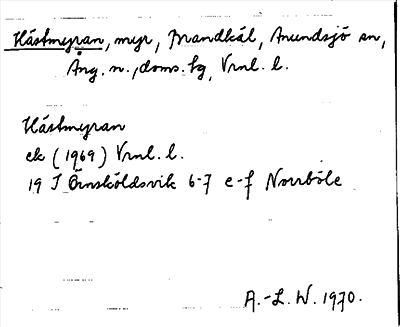 Hästmyran, myr, Brandkäl, Anundsjö sn,
Ång. n., doms. hg, Vrnl. l.
Hästmyran
ek (1969) Vrnl. l.
19 J Örnsköldsvik 6-7 e-f Norrböle
A.-L. W. 1970.